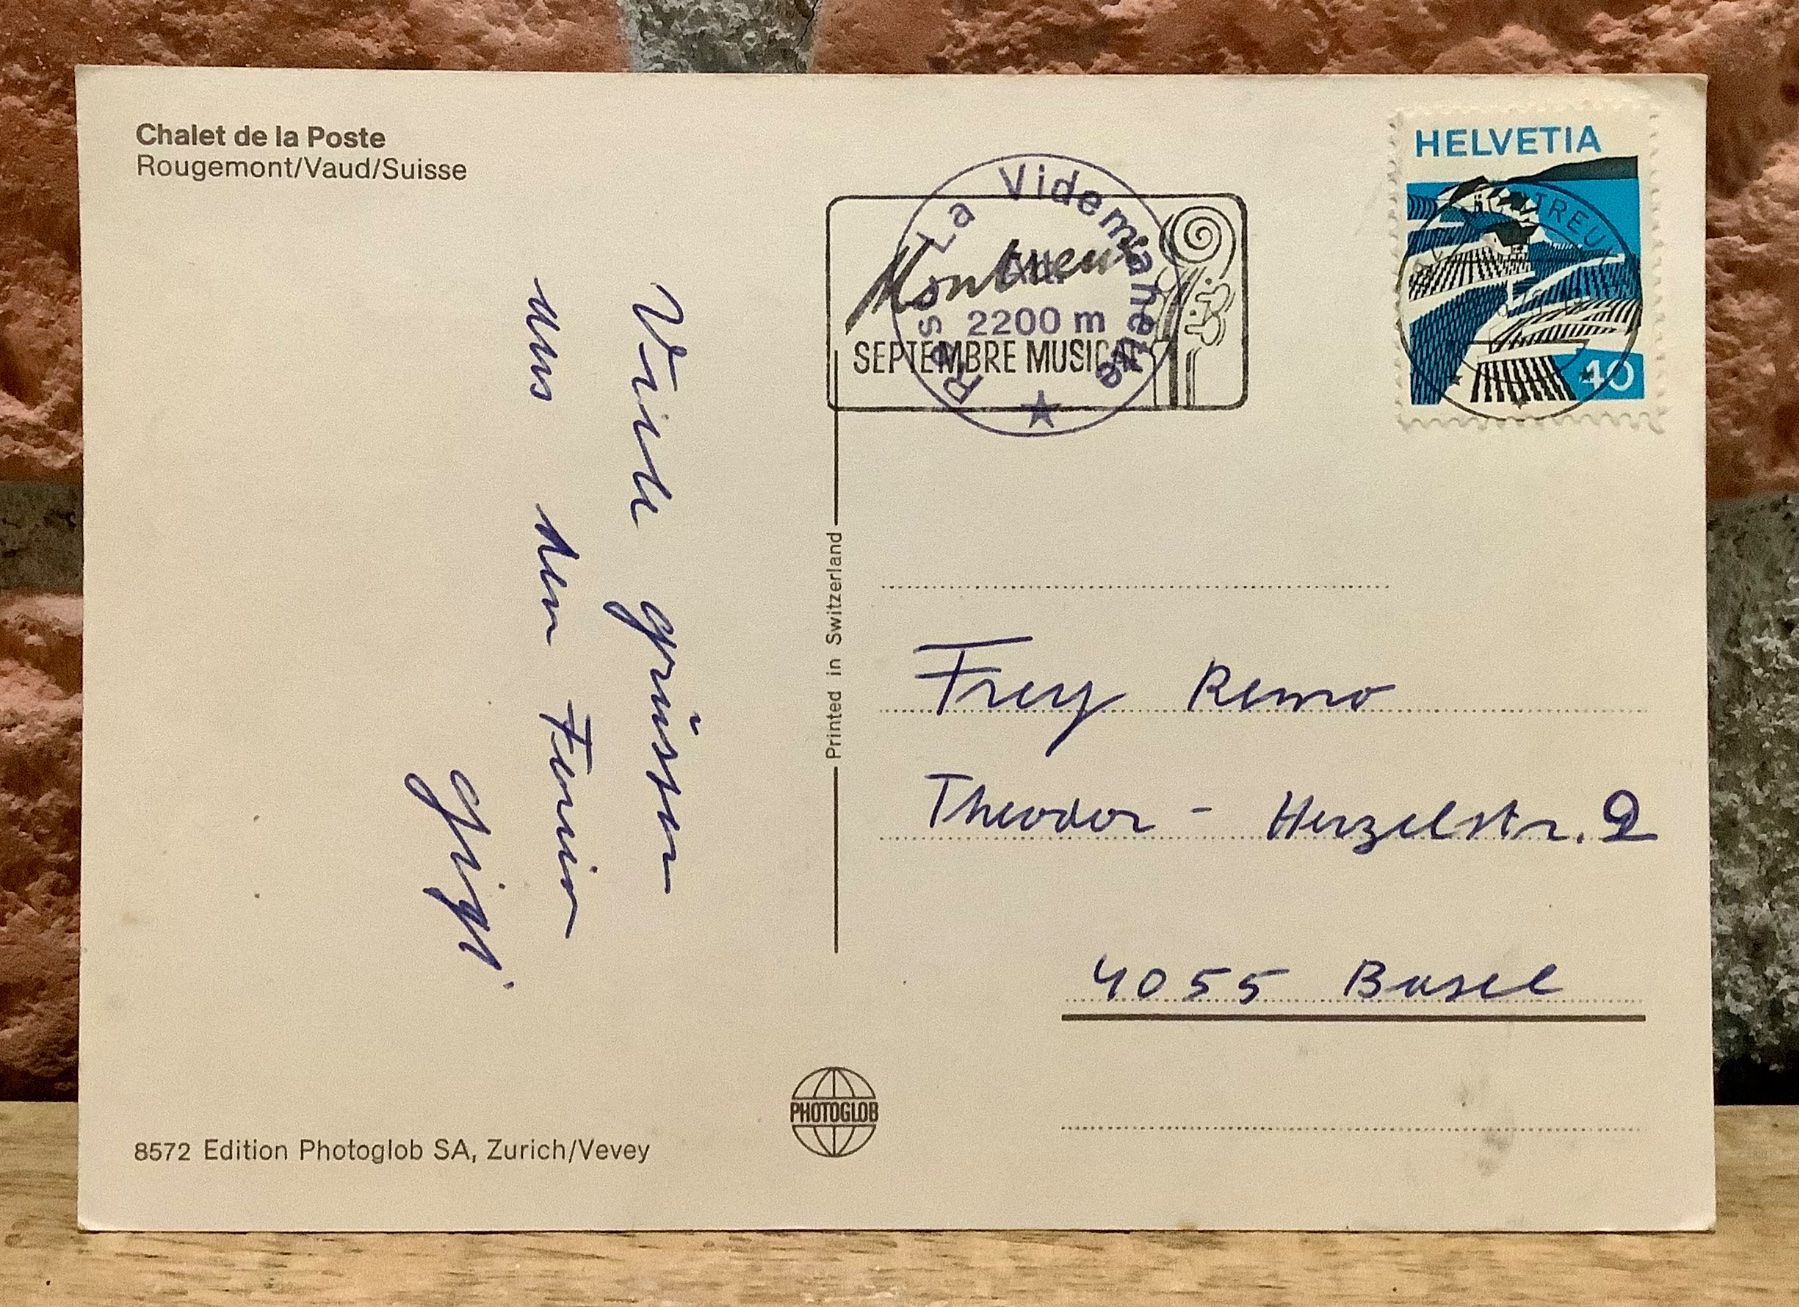 Chalet de la Poste
Rougemont/Vaud/Suisse
Viele grüssen
aus den Ferien
Gigi.
8572 Edition Photoglob SA, Zurich/Vevey
Printed in Switzerland
PHOTOGLOB
Montreux
SEPTEMBRE MUSICAL
Resto La Videmanette
Alt.
2200 m
HELVETIA
TREUX
40
Frey Remo
Theodor - Herzelstr. 2
4055 Basel